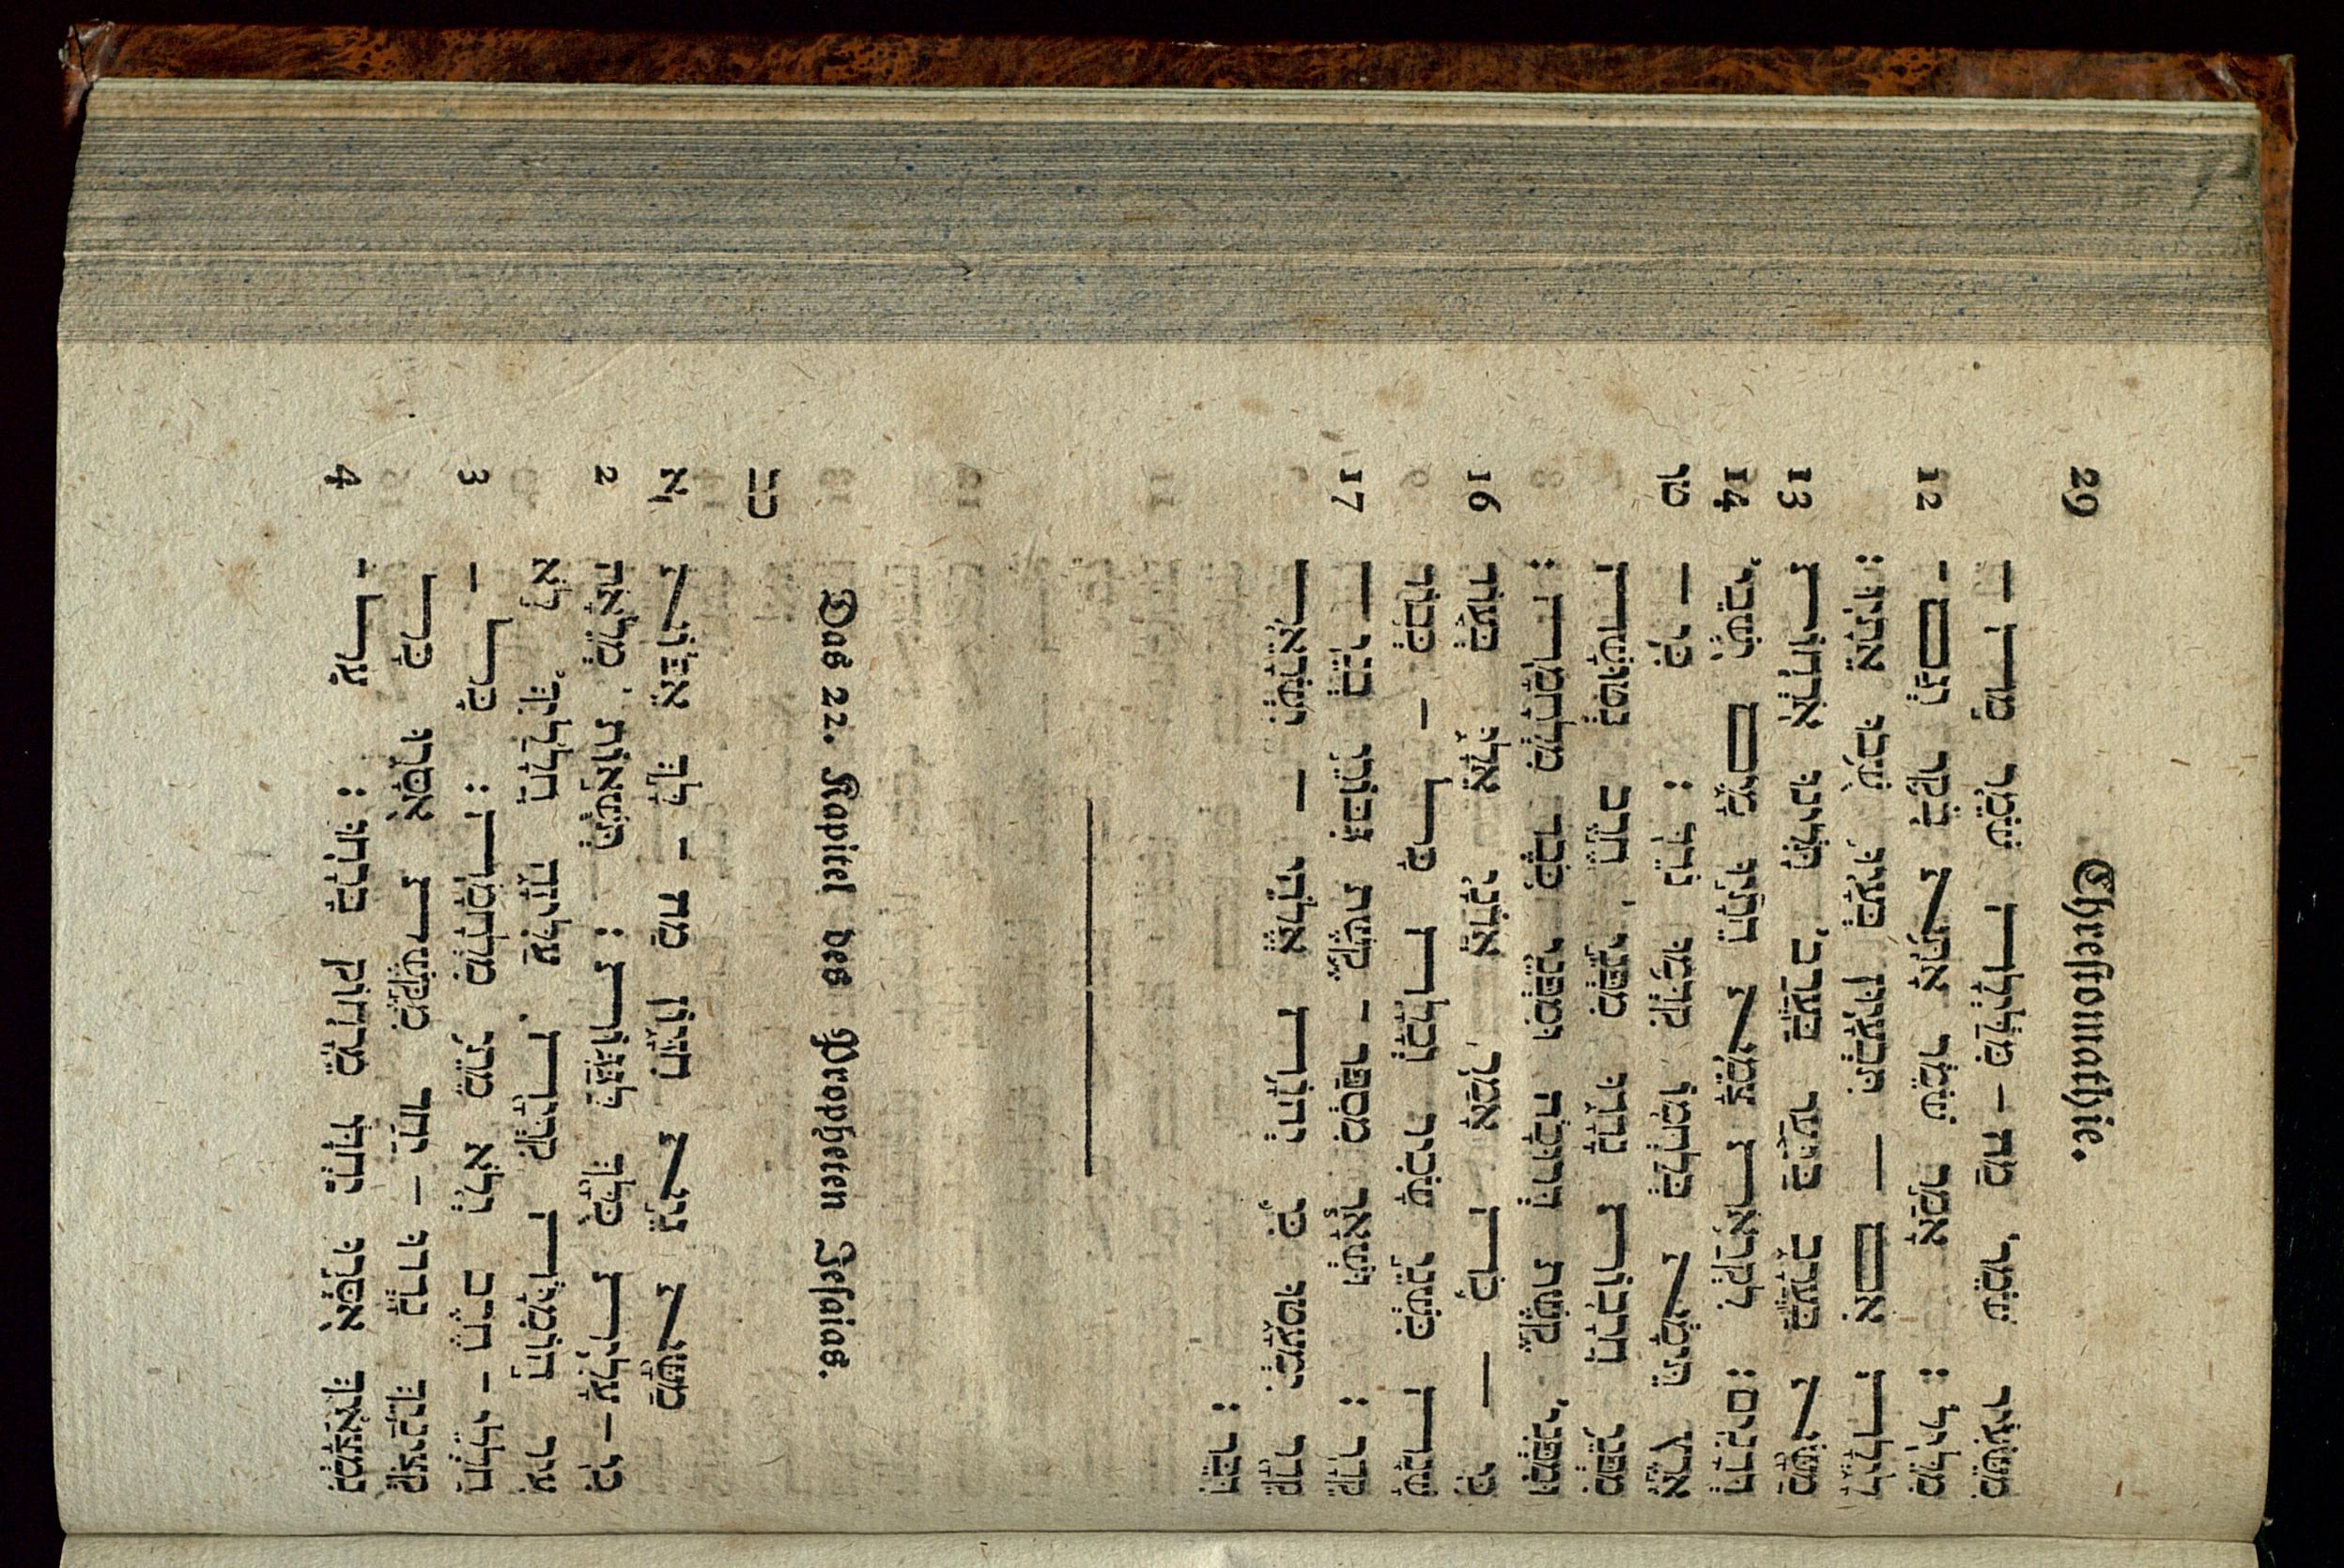 29 Chrestomathie.
מִשֵּׂעִיר שֹׁמֵר מַה־מִלַּיְלָה שֹׁמֵר מַה־
12 מִלֵּיל : אָמַר שֹׁמֵר אָתָא בֹקֶר וְגַם־
לָיְלָה אִם־תִּבְעָיוּן בְּעָיוּ שֻׁבוּ אֵתָיוּ :
13 מַשָּׂא בַּעְרָב בַּיַּעַר בַּעְרַב תָּלִינוּ אֹרְחוֹת
14 דְּדָנִים : לִקְרַאת צָמֵא הֵתָיוּ מָיִם יֹשְׁבֵי
טו אֶרֶץ תֵּימָא בְּלַחְמוֹ קִדְּמוּ נֹדֵד : כִּי־
מִפְּנֵי חֲרָבוֹת נָדָדוּ מִפְּנֵי חֶרֶב נְטוּשָׁה
וּמִפְּנֵי קֶשֶׁת דְּרוּכָה וּמִפְּנֵי כֹּבֶד מִלְחָמָה :
16 כִּי־כֹה אָמַר אֲדֹנָי אֵלָי בְּעוֹד
שָׁנָה כִּשְׁנֵי שָׂכִיר וְכָלָה כָּל־כְּבוֹד
17 קֵדָר : וּשְׁאָר מִסְפַּר־קֶשֶׁת גִּבּוֹרֵי בְנֵי־
קֵדָר יִמְעָטוּ כִּי יְהוָה אֱלֹהֵי־יִשְׂרָאֵל
דִּבֵּר :
Das 22. Kapitel des Propheten Jesaias.
כב
א מַשָּׂא גֵּיא חִזָּיוֹן מַה־לָּךְ אֵפוֹא
2 כִּי־עָלִית כֻּלָּךְ לַגַּגּוֹת : תְּשֻׁאוֹת מְלֵאָה
עִיר הוֹמִיָּה קִרְיָה עַלִּיזָה חֲלָלַיִךְ לֹא
3 חַלְלֵי־חֶרֶב וְלֹא מֵתֵי מִלְחָמָה : כָּל־
קְצִינַיִךְ נָדְדוּ־יַחַד מִקֶּשֶׁת אֻסָּרוּ כָּל־
4 נִמְצָאַיִךְ אֻסְּרוּ יַחְדָּו מֵרָחוֹק בָּרָחוּ : עַל־